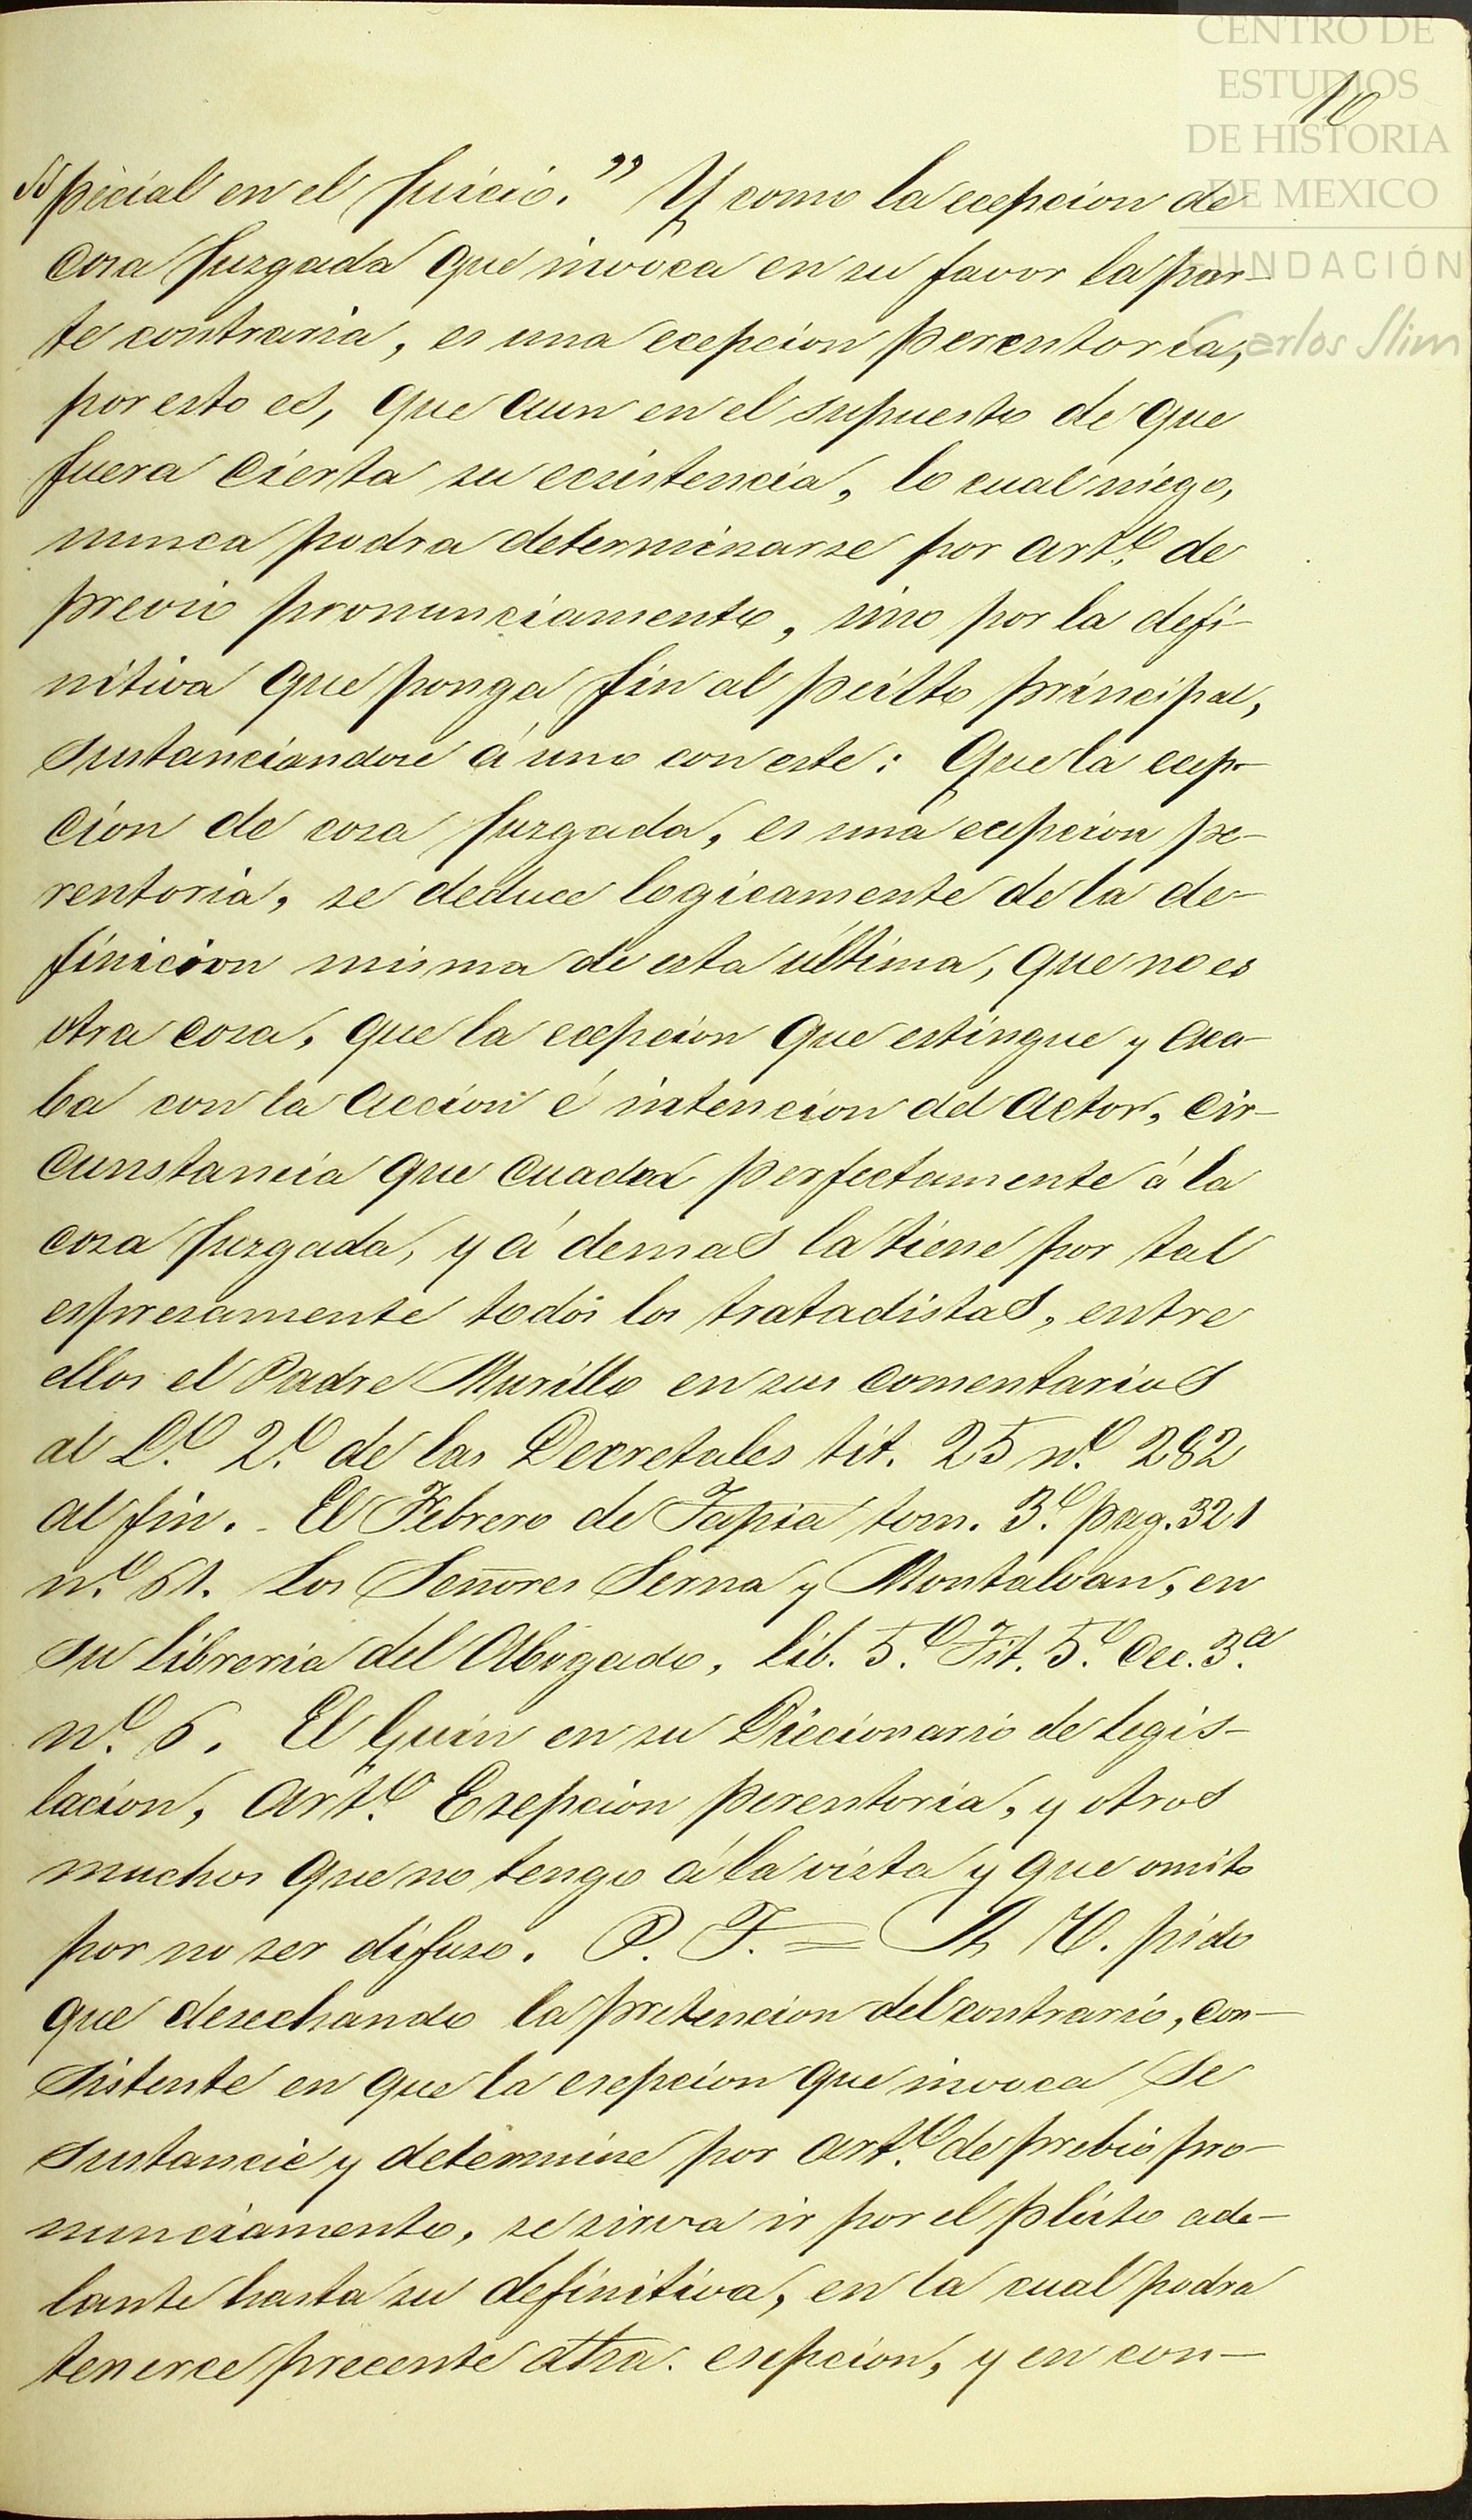 CENTRO DE
ESTUDIOS
DE HISTORIA
DE MEXICO
FUNDACIÓN
Carlos Slim
10
"pecial en el juicio." Y como la ecepcion de
cosa juzgada que invoca en su favor la par-
te contraria, es una ecepcion perentoria,
por esto es, que aun en el supuesto de que
fuera cierta su ecsistencia, lo cual niego,
nunca podra determinarse por artº. de
previo pronunciamento, sino por la defi-
nitiva que ponga fin al peitto principal,
sustanciandose á uno con este: Que la ecep-
cion de cosa juzgada, es una ecepcion pe-
rentoria, se deduce logicamente de la de-
finicion misma de esta última, que no es
otra cosa, que la ecepcion que estingue y aca-
ba con la accion é intencion del actor, cir-
cunstancia que cuadra perfectamente á la
cosa juzgada, y á demas la tiene por tal
espresamente todos los tratadistas, entre
ellos el Padre Murillo en sus comentarios
al Lº. 2º. de las Decretales tit. 25 nº. 282
al fin. El Febrero de Tapia tom. 3º. pag. 321
nº. 61. Los Señores Serna y Montalvan, en
su libreria del Abogado, lib. 5º. Tit. 5º. Sec. 3ª.
nº. 6. El Guin en su Diccionario de legis-
lacion, artº. Esepcion perentoria, y otros
muchos que no tengo á la vista y que omito
por no ser difuso. P. T. = A V. pido
que desechando la pretencion del contrario, con-
sistente en que la esepcion que invoca se
sustancie y determine por artº. de prebio pro-
nunciamento, se sirva ir por el pleito ade-
lante hasta su definitiva, en la cual podra
tenerce precente dha. esepcion, y en con-